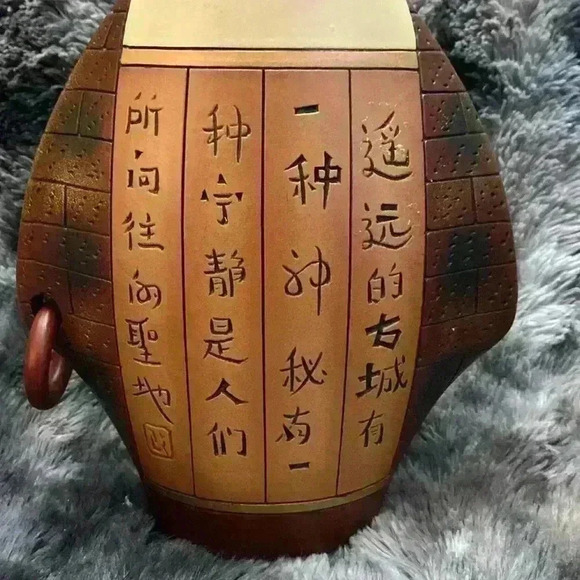 遥远的古城有
一种神秘有一
种宁静是人们
所向往的聖地